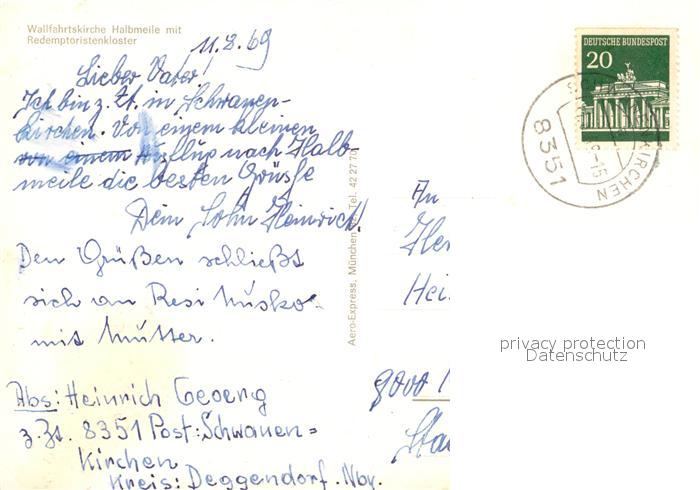 Wallfahrtskirche Halbmeile mit
Redemptoristenkloster
11.8.69
Lieber Vater!
Ich bin z. Zt. in Schwanen-
kirchen. Von einem kleinen
von einem Ausflug nach Halb-
meile die besten Grüße
Dein Sohn Heinrich!
Den Grüßen schließt
sich an Resi
mit Mutter.
Abs: Heinrich Georg
z. Zt. 8351 Post: Schwanen=
Kirchen
Kreis: Deggendorf. Nby.
Aero-Express, München Tel. 42 27 70
DEUTSCHE BUNDESPOST
20
8351
KIRCHEN
-15
An
Her
Hei
privacy protection
Datenschutz